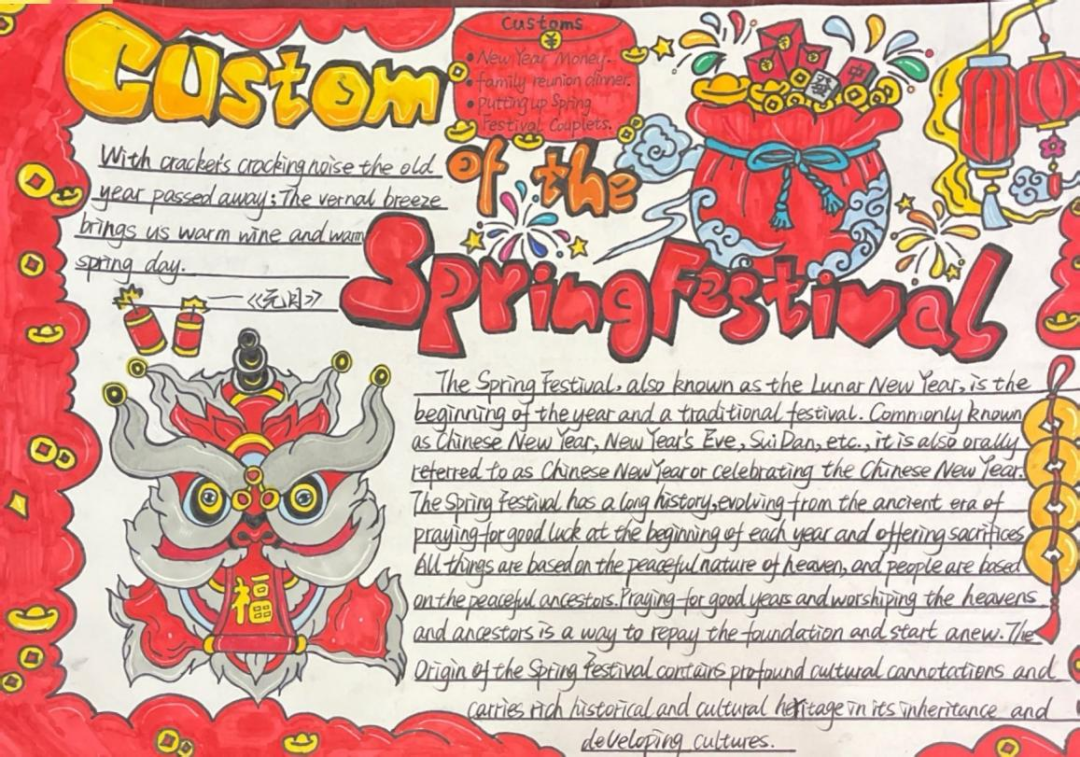 Custom
of the
Spring Festival
Customs
• New Year Money.
• family reunion dinner.
• putting up Spring
Festival Couplets.
With crackers cracking noise the old
year passed away; The vernal breeze
brings us warm wine and warm
spring day.
——《元日》
福
中
The Spring Festival, also known as the Lunar New Year, is the
beginning of the year and a traditional festival. Commonly known
as Chinese New Year, New Year's Eve, Sui Dan, etc., it is also orally
referred to as Chinese New Year or celebrating the Chinese New Year.
The Spring Festival has a long history, evolving from the ancient era of
praying for good luck at the beginning of each year and offering sacrifices
All things are based on the peaceful nature of heaven, and people are based
on the peaceful ancestors. Praying for good years and worshiping the heavens
and ancestors is a way to repay the foundation and start anew. The
Origin of the Spring Festival contains profound cultural cannotations and
carries rich historical and cultural heritage in its inheritance and
developing cultures.